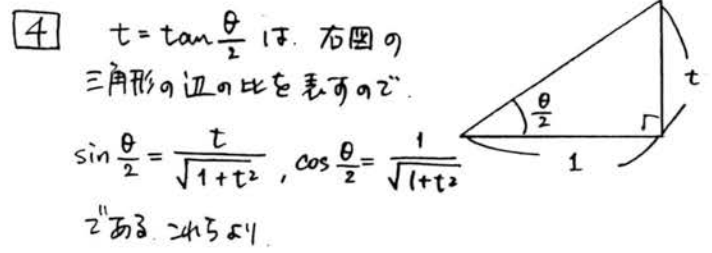 4 t = tan θ/2 は. 右図の
三角形の辺の比を表すので.
sin θ/2 = t/√(1+t²) , cos θ/2 = 1/√(1+t²)
である. これらより.
θ/2
t
1